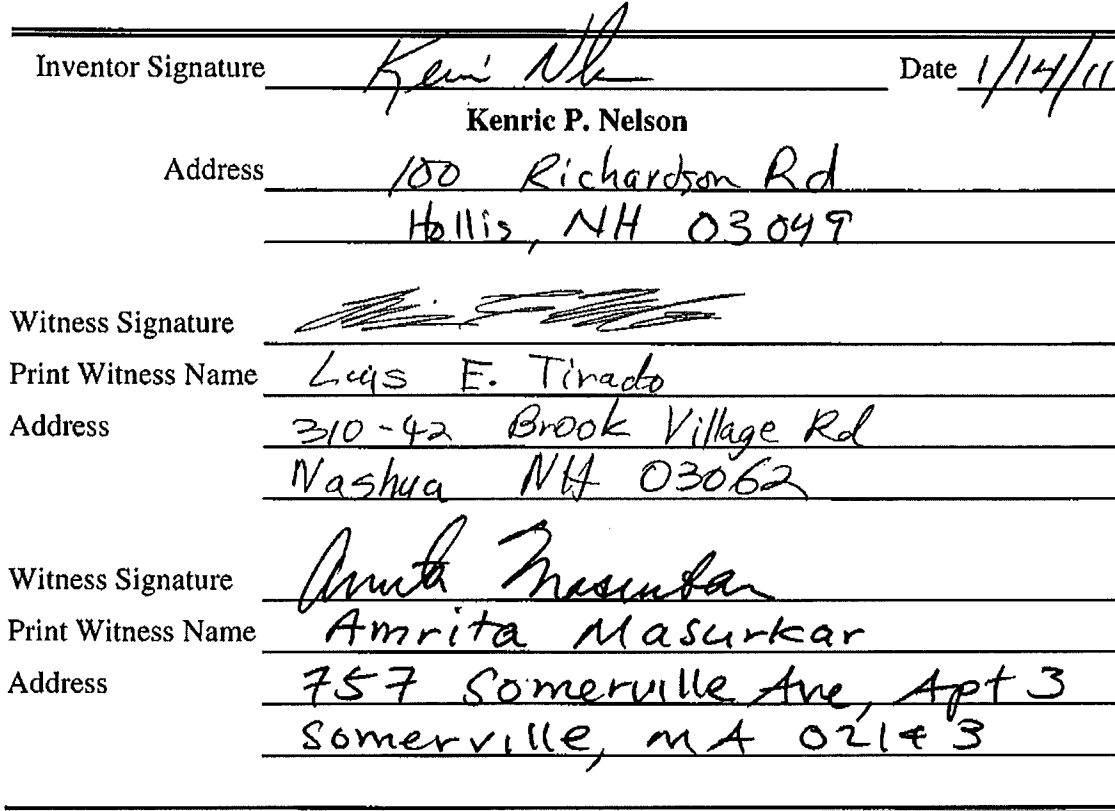 Inventor Signature Date 1/14/11
Kenric P. Nelson
Address 100 Richardson Rd
Hollis, NH 03049
Witness Signature
Print Witness Name Luis E. Tirado
Address 310-42 Brook Village Rd
Nashua NH 03062
Witness Signature Amrita Masurkar
Print Witness Name Amrita Masurkar
Address 757 Somerville Ave, Apt 3
Somerville, MA 02143